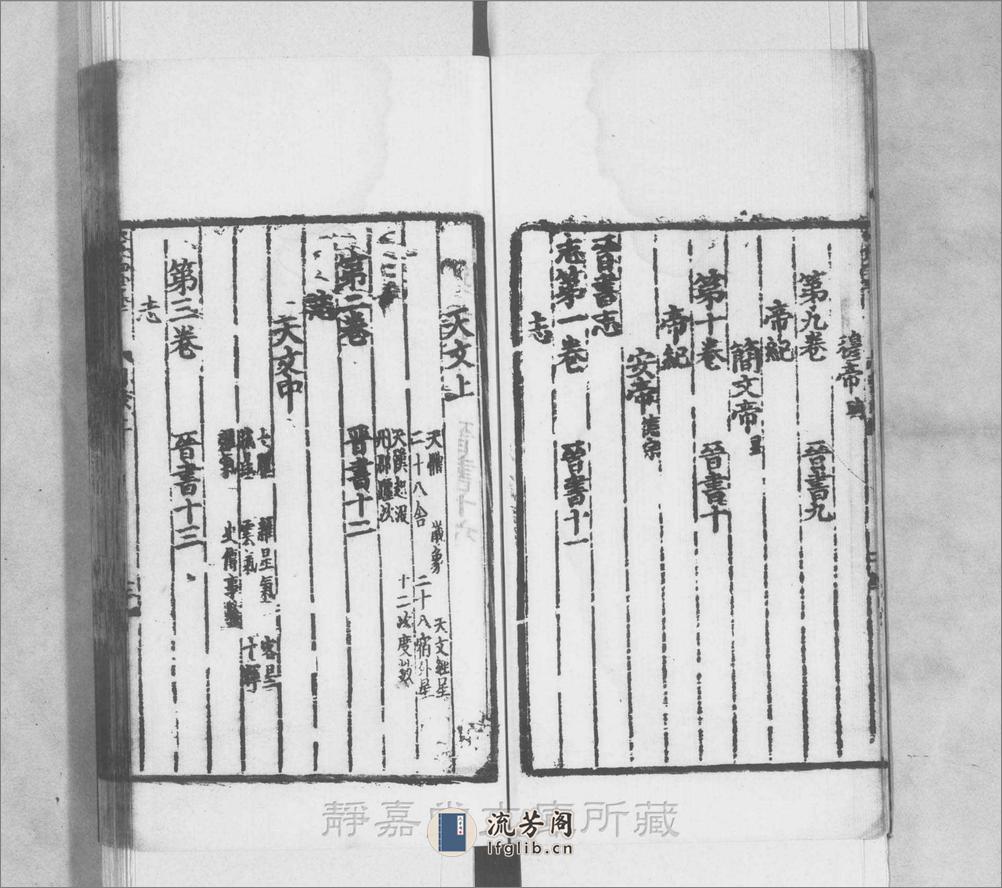 穆帝
第九卷 晉書九
帝紀
簡文帝昱
第十卷 晉書十
帝紀
安帝德宗
晋書志
志第一卷 晉書十一
志
天文上
天體 儀象 天文經星
二十八舍 二十八宿外星
天漢起没 十二次度數
州郡躔次
第二卷 晉書十二
志
天文中
七曜 雜星氣 客星
雲氣 十煇
雜氣 史傳事驗
第三卷 晉書十三
志
靜嘉堂文庫所藏
流芳阁
lfglib.cn